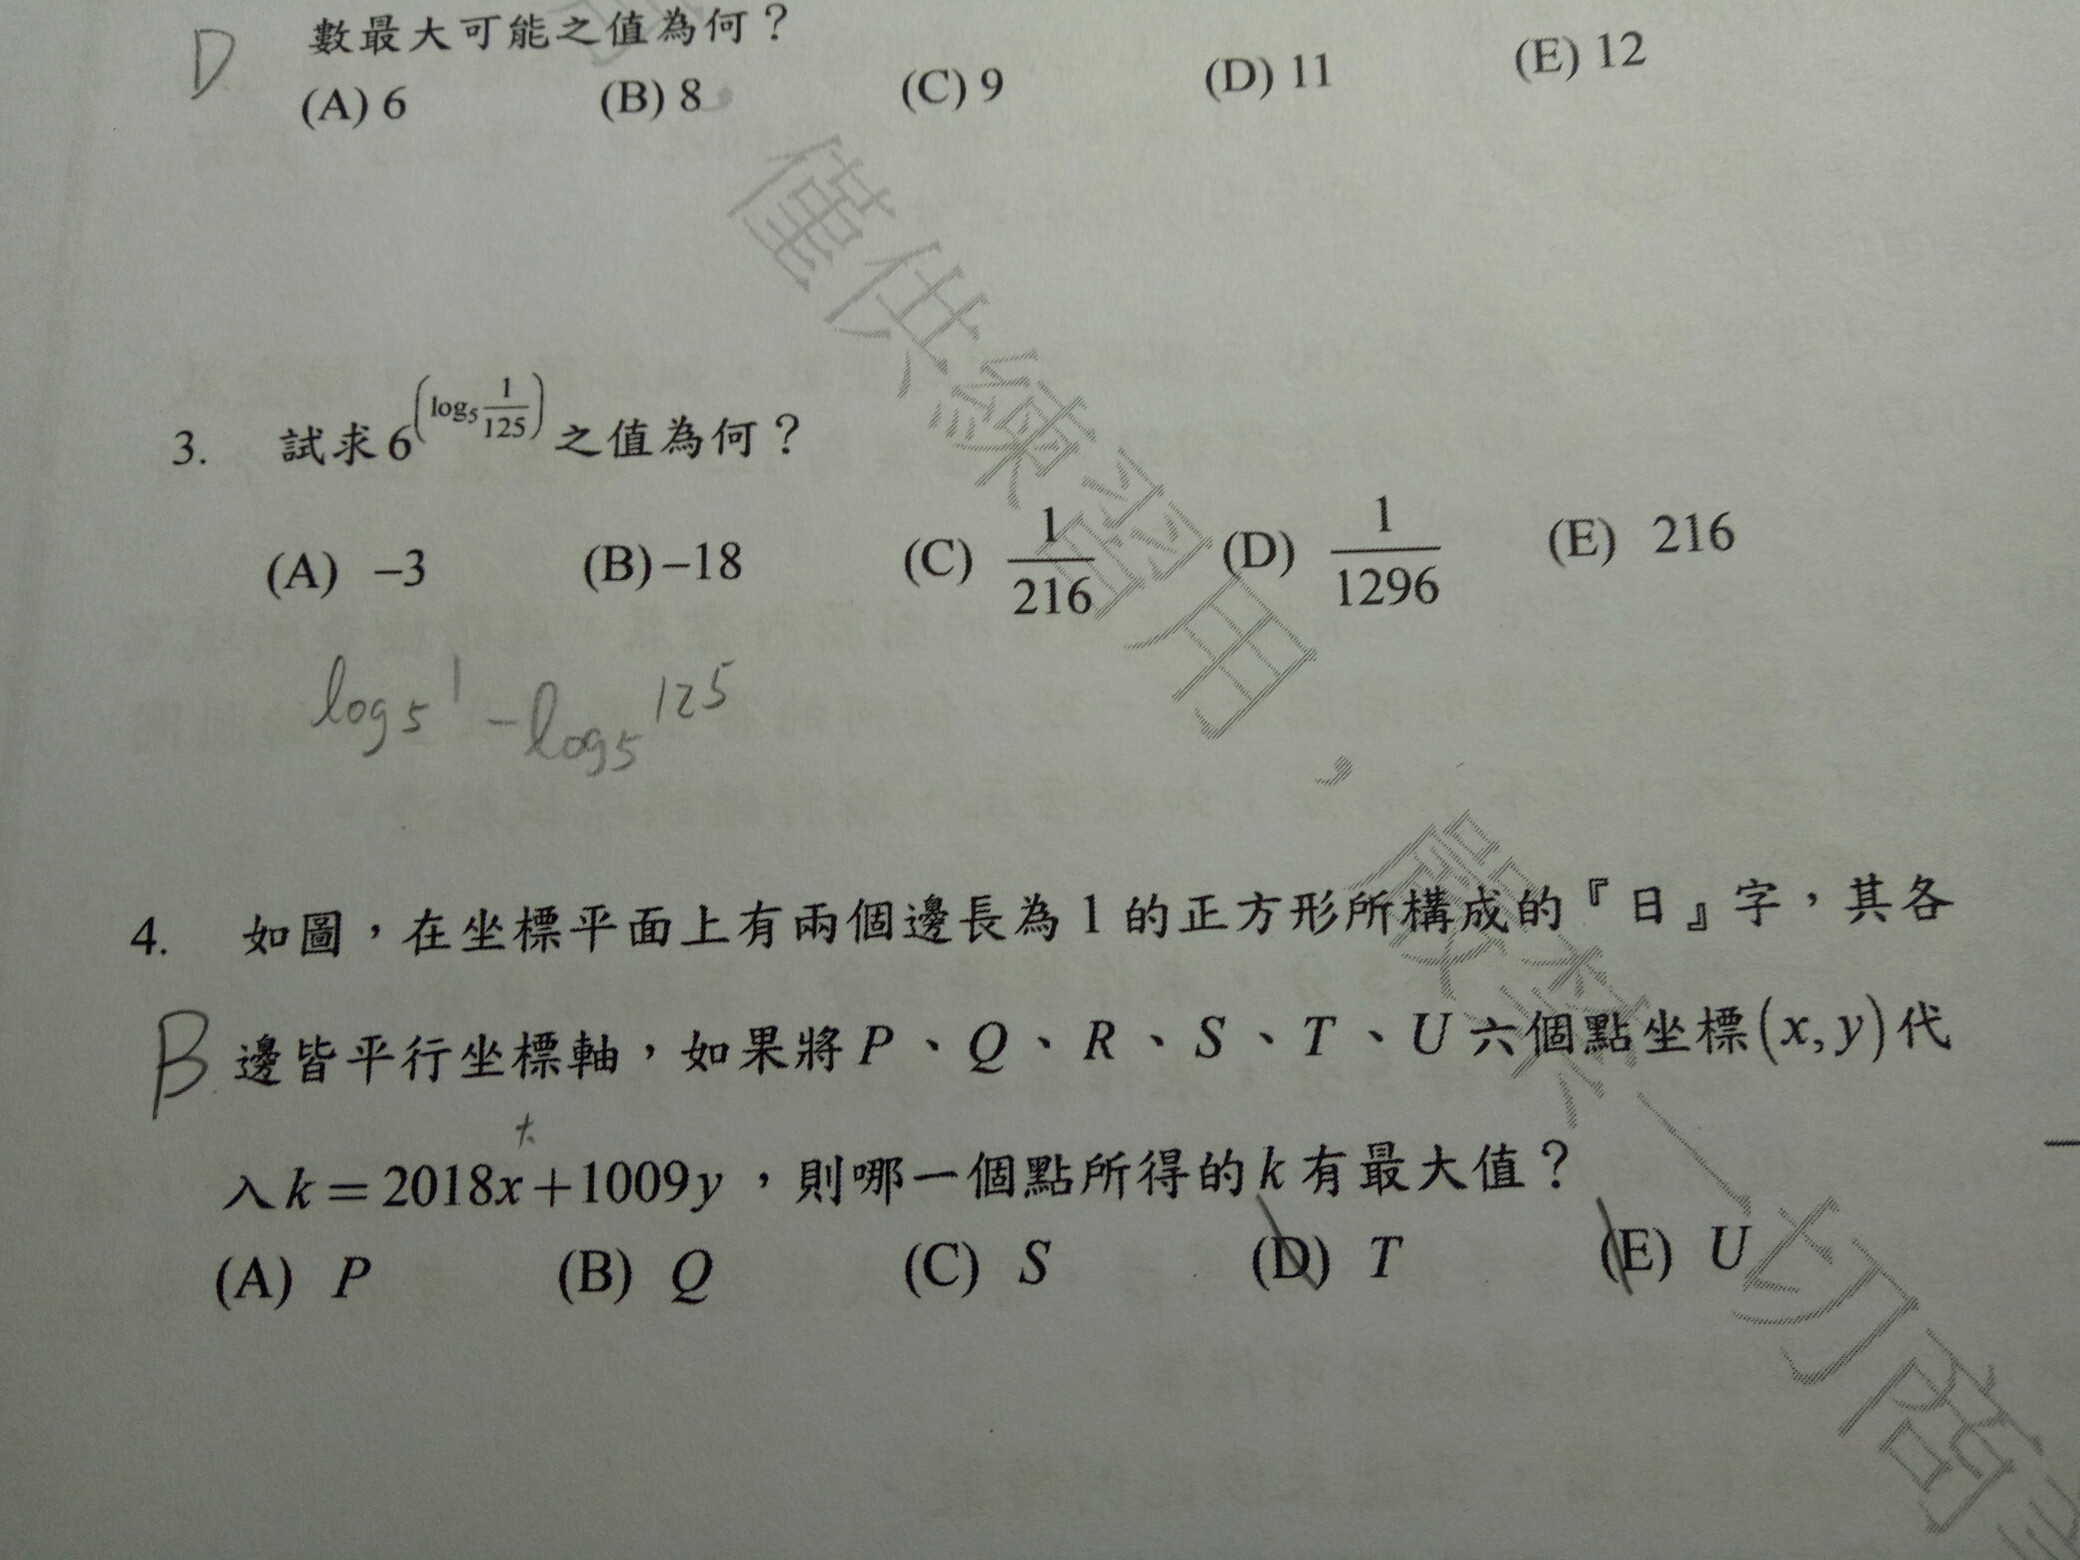 D
數最大可能之值為何？
(A) 6 (B) 8 (C) 9 (D) 11 (E) 12
3. 試求 6^(log₅ 1/125) 之值為何？
(A) –3 (B) –18 (C) 1/216 (D) 1/1296 (E) 216
log₅1 – log₅125
4. 如圖，在坐標平面上有兩個邊長為 1 的正方形所構成的『日』字，其各
B 邊皆平行坐標軸，如果將 P、Q、R、S、T、U 六個點坐標(x, y)代
入 k = 2018x + 1009y ，則哪一個點所得的 k 有最大值？
(A) P (B) Q (C) S (D) T (E) U
僅供練習用，